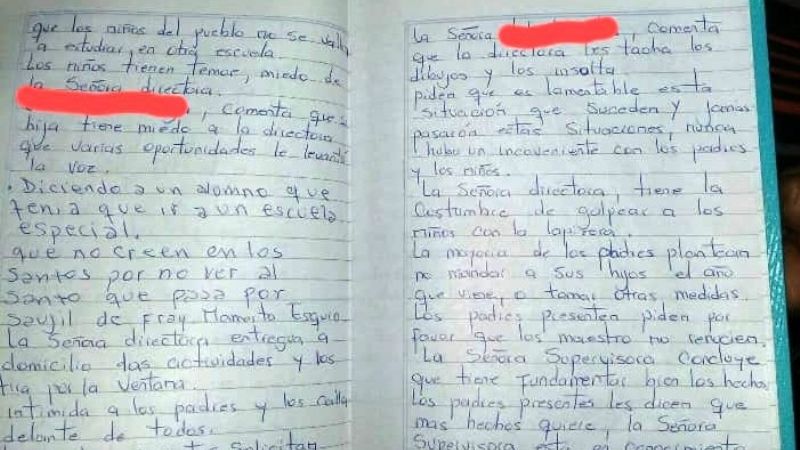 que los niños del pueblo no se valla
a estudiar, en otra escuela.
Los niños tienen temor, miedo de
la Señora directora.
, comenta que
hija tiene miedo a la directora
que varias oportunidades le levanto
la voz.
. Diciendo a un alomno que
tenia que ir a un escuela
especial.
que no creen en los
Santos por no ver al
Santo que pasa por
Saujil de Fray Mamerto Esquiu
La Señora directora entrega a
domicilio las actividades y los
tira por la ventana.
intimida a los padres y los calla
delante de todos.
Solicitan
La Señora , Comenta
que la directora les tacha los
dibujos y los insolta.
piden que es lamentable esta
Situación que Suceden y jamas
pasaron estas Situaciones, nunca
hubo un incoveniente con los padres
y los niños.
La Señora directora, tiene la
Costumbre de golpear a los
niños con la lapicera.
La mayoria de los padres plantean
no mandar a Sus hijos el año
que viene, o tomar otras medidas.
Los padres presenten piden por
favor que los maestro no renucien.
La Señora Supervisora Concluye
que tiene fundamentar bien los hechos
Los padres presentes les dicen que
mas hechos quiere, la Señora
Supervisora esta en conocimiento